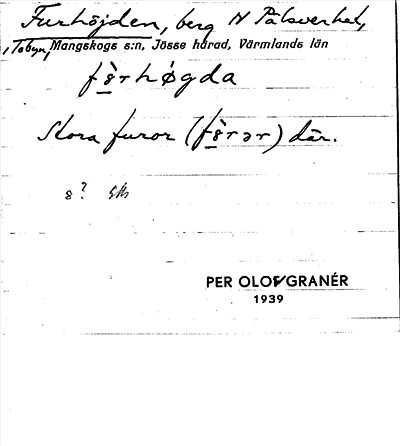 Furhöjden, berg N Pålsverket,
i Tobyn, Mangskogs s:n, Jösse härad, Värmlands län
fö̀rhøgda
Stora furor (fö̀rər) där.
8?
PER OLOF GRANÉR
1939